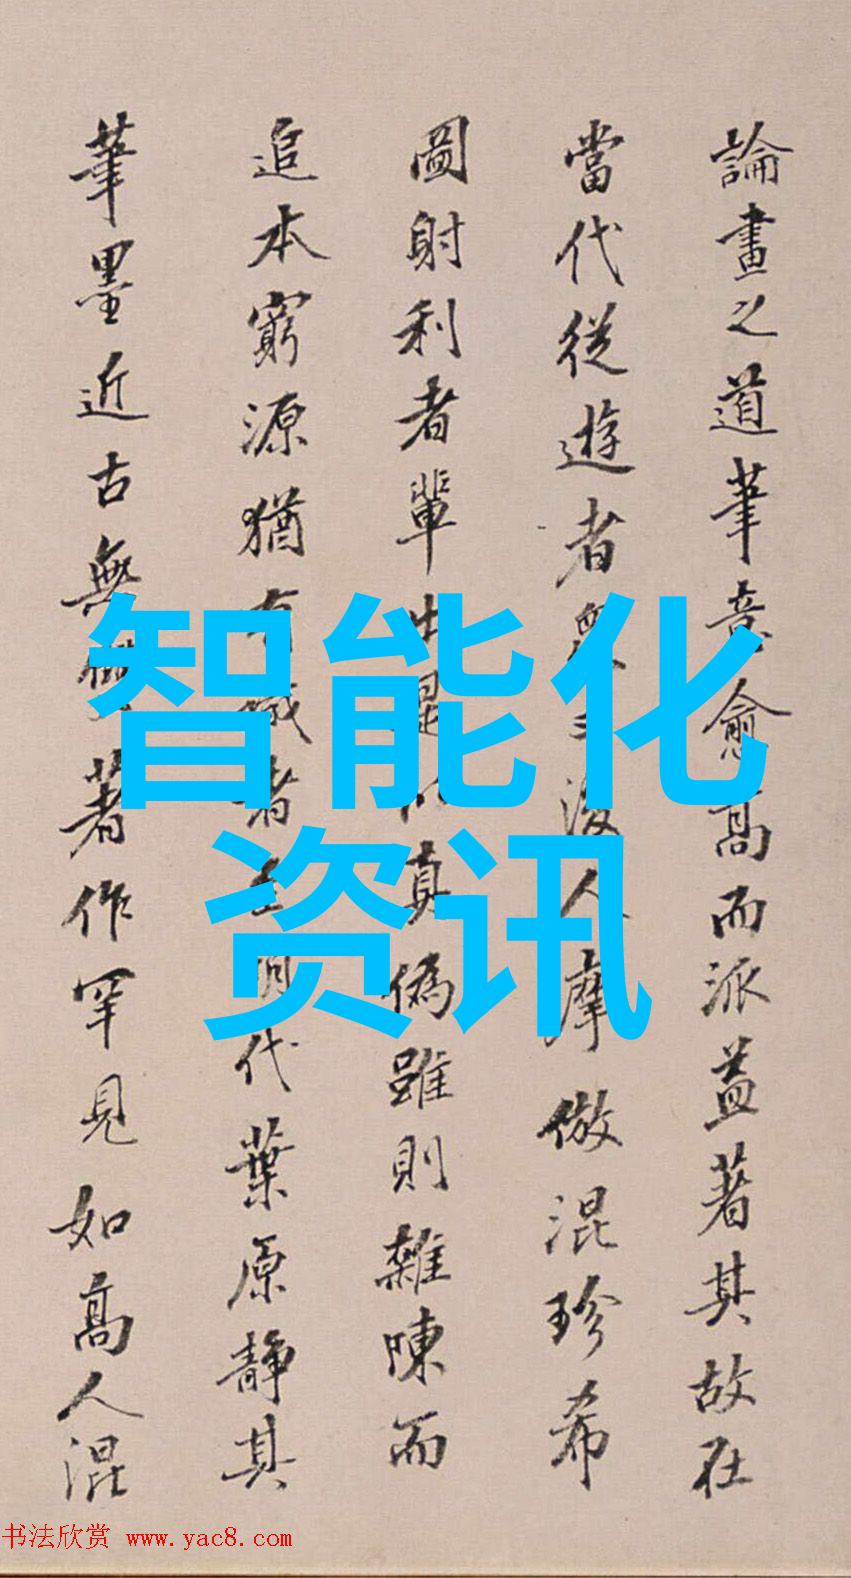 論畫之道筆意愈高而派益著其故在
當代從遊者後人摩倣混珍希
圖射利者輩出是以真偽雖則雜陳而
追本窮源猶有識者代葉原靜其
筆墨近古無著作罕見如高人混
智能化
资讯
书法欣赏 www.yac8.com